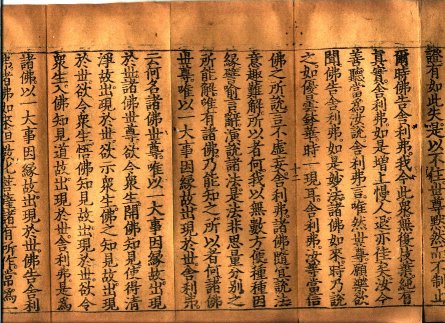 證有如此失是以不住世尊默然而不制止
爾時佛告舍利弗我今此衆無復枝葉純有
真實舍利弗如是增上慢人退亦佳矣汝今
善聽當爲汝説舍利弗言唯然世尊願樂欲
聞佛告舍利弗如是妙法諸佛如來時乃説
之如優曇鉢華時一現耳舍利弗汝等當信
佛之所説言不虚妄舍利弗諸佛隨宜説法
意趣難解所以者何我以無數方便種種因
縁譬喻言辭演説諸法是法非思量分別之
所能解唯有諸佛乃能知之所以者何諸佛
世尊唯以一大事因縁故出現於世舍利弗
云何名諸佛世尊唯以一大事因縁故出現
於世諸佛世尊欲令衆生開佛知見使得清
淨故出現於世欲示衆生佛之知見故出現
於世欲令衆生悟佛知見故出現於世欲令
衆生入佛知見道故出現於世舍利弗是爲
諸佛以一大事因縁故出現於世佛告舍利
弗諸佛如來但教化菩薩諸有所作常爲